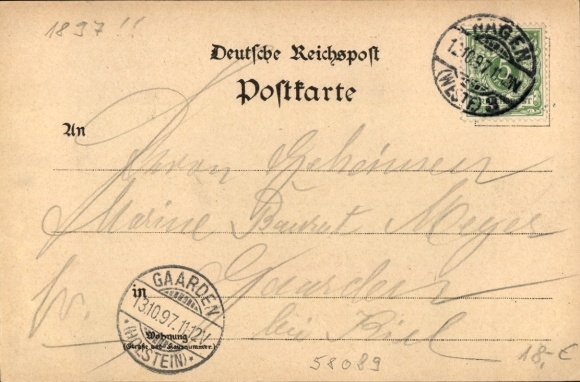 1897!!
HAGEN
12.10.97. 11-12N
(WESTF) 3
Deutsche Reichspost
Postkarte
An
Herrn Geheimen
Marine Baurat Meyer
fr. Gaarden
bei Kiel
in
GAARDEN
13.10.97. 11-12V
(HOLSTEIN)
Wohnung
(Straße und Hausnummer)
58089
18,- €